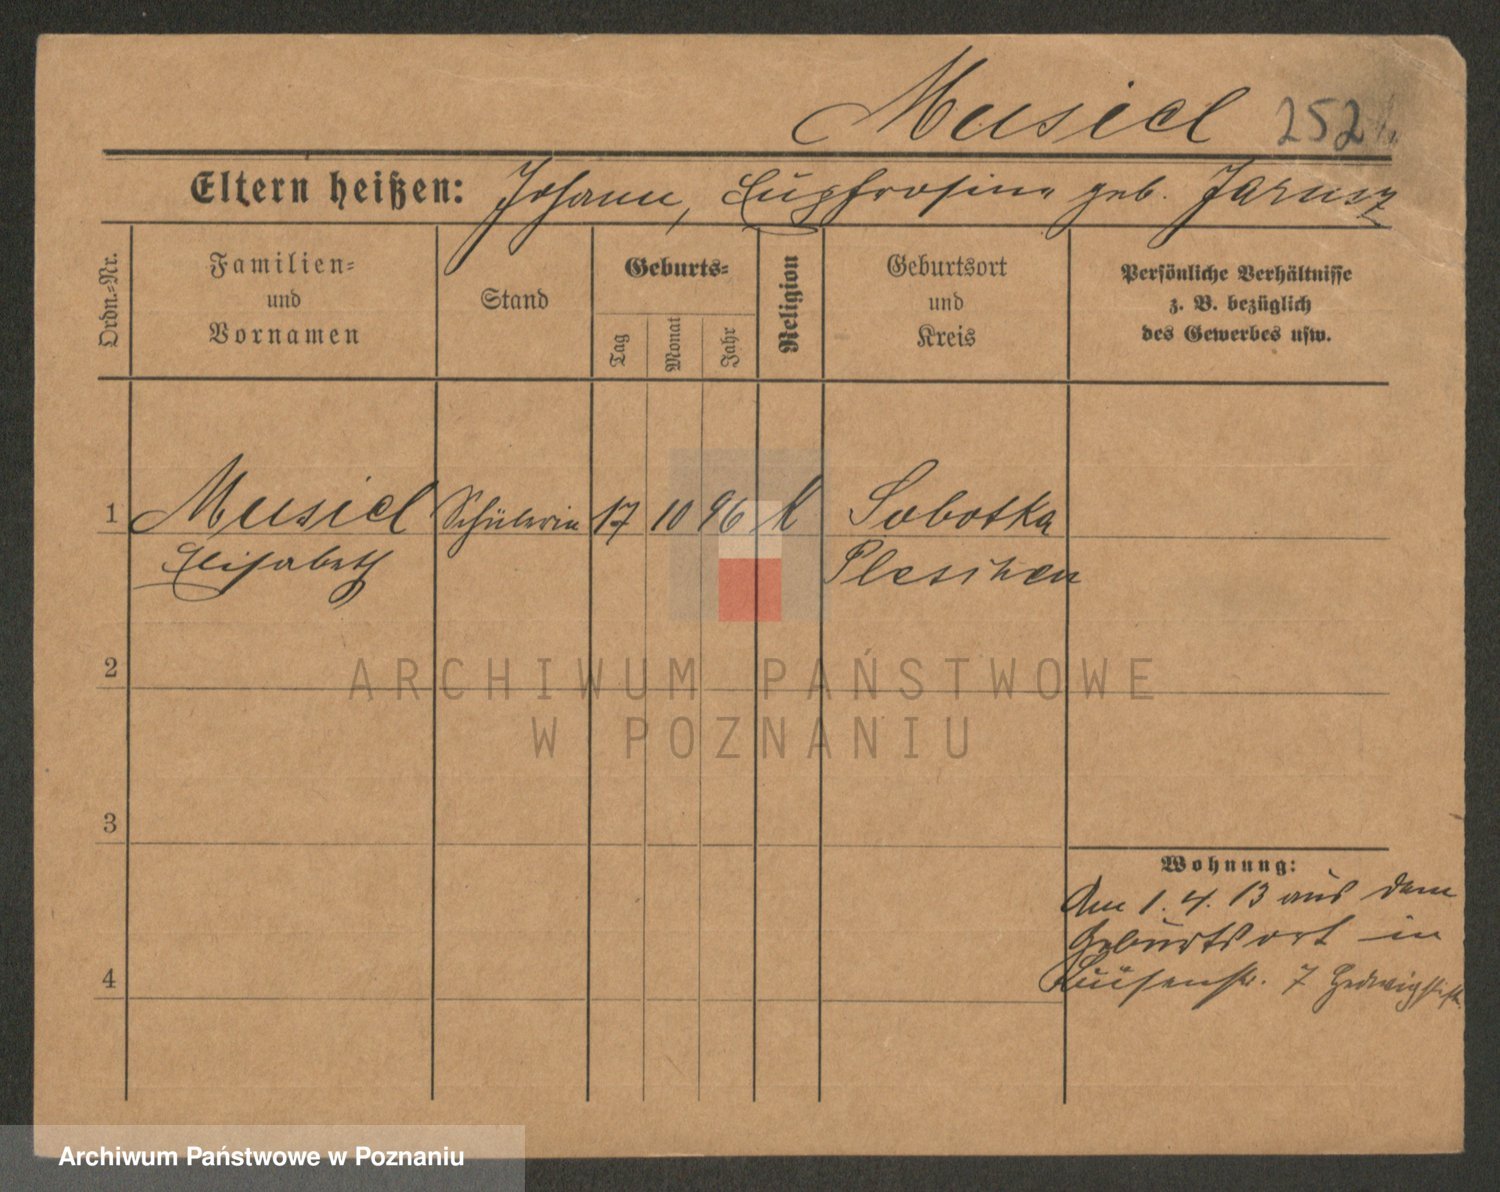 Musiel 252
Eltern heißen: Johann, Eufrosine geb. Jarusz
Ordn.-Nr.
Familien-
und
Vornamen
Stand
Geburts-
Tag
Monat
Jahr
Religion
Geburtsort
und
Kreis
Persönliche Verhältnisse
z. B. bezüglich
des Gewerbes usw.
1 Musiel Schülerin 17 10 96 K Sobotka
Elisabeth Pleschen
2
3
4
Wohnung:
Am 1. 4. 13 aus dem
Geburtsort in
Luisenstr. 7 Hedwigstift
ARCHIWUM PAŃSTWOWE
W POZNANIU
Archiwum Państwowe w Poznaniu